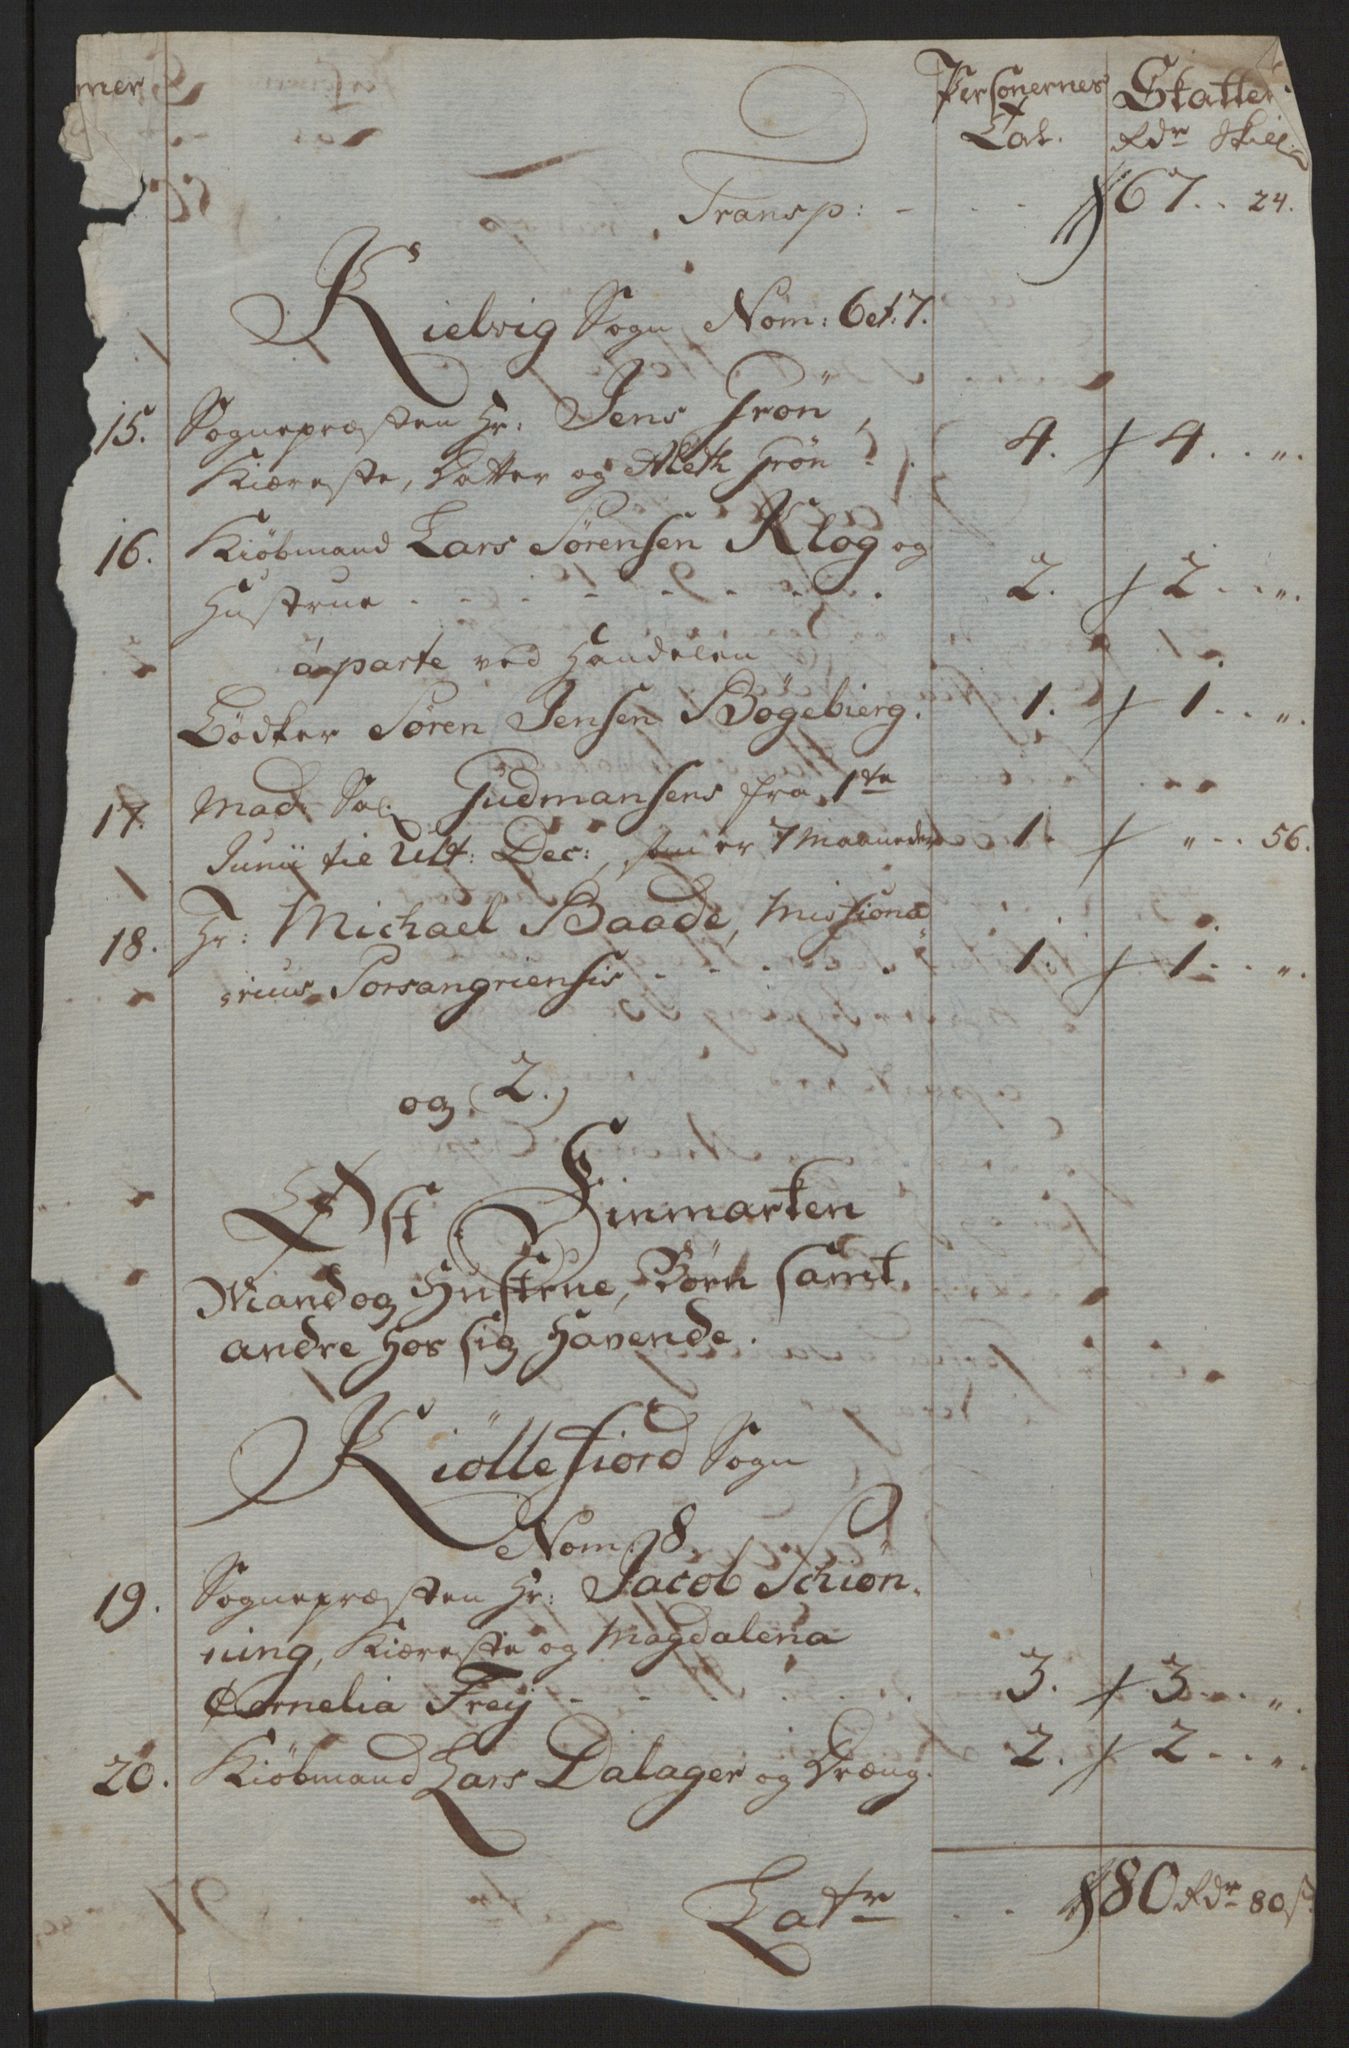 mer
Personernes Skatter
Tal. Rdr Skill
Transp: - - - 67. . 24.
Kielvig Sogn Nom: 6 et 7.
15. Sognepræsten Hr: Jens Grön,
Kiæreste, Datter og Aleth Grön - . 4. 4. . . „.
16. Kiöbmand Lars Sörensen Klog og
Hustrue . - - - - - . 2. 2 - . . „.
á parte ved Handelen
Bödker Sören Jensen Bögebierg. 1. 1. . . „.
17. Mad: Sal. Gudmansens fra 1te
Junii til Ult: Dec:, som er 7 Maaneder 1. „ - . . 56.
18. Hr: Michael Baade, Missiona
rius Porsangriensis - - - - . 1. 1. . . „.
og 2.)
Øst Finmarken
Mand og Hustrue, Børn samt
andre hos sig Havende.
Kiöllefiord Sogn
Nom: 8.
19. Sognepræsten Hr: Jacob Schiön-
ning, Kiæreste og Magdalena
Cornelia Freÿ - - - - - . 3. 3. . . „.
20. Kiöbmand Lars Dalager og Dræng. 2. 2 - . . „.
Latr - - 80 Rdr 80 s